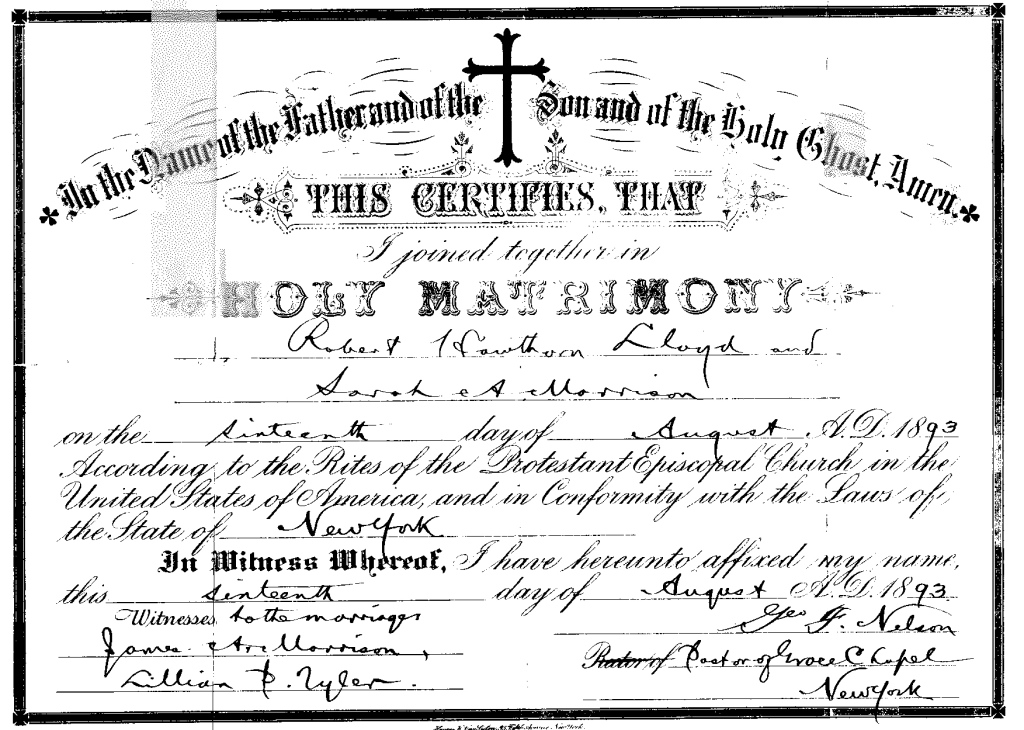 In the Name of the Father and of the Son and of the Holy Ghost, Amen.
THIS CERTIFIES, THAT
I joined together in
HOLY MATRIMONY
Robert Hawthorn Lloyd and
Sarah A Morrison
on the sixteenth day of August A.D. 1893
According to the Rites of the Protestant Episcopal Church in the
United States of America, and in Conformity with the Laws of
the State of New York
In Witness Whereof, I have hereunto affixed my name,
this sixteenth day of August A.D. 1893
Witnesses to the marriage
Geo F. Nelson
James Morrison,
Rector of Pastor of Grace Chapel
Lillian P. Tyler.
New York